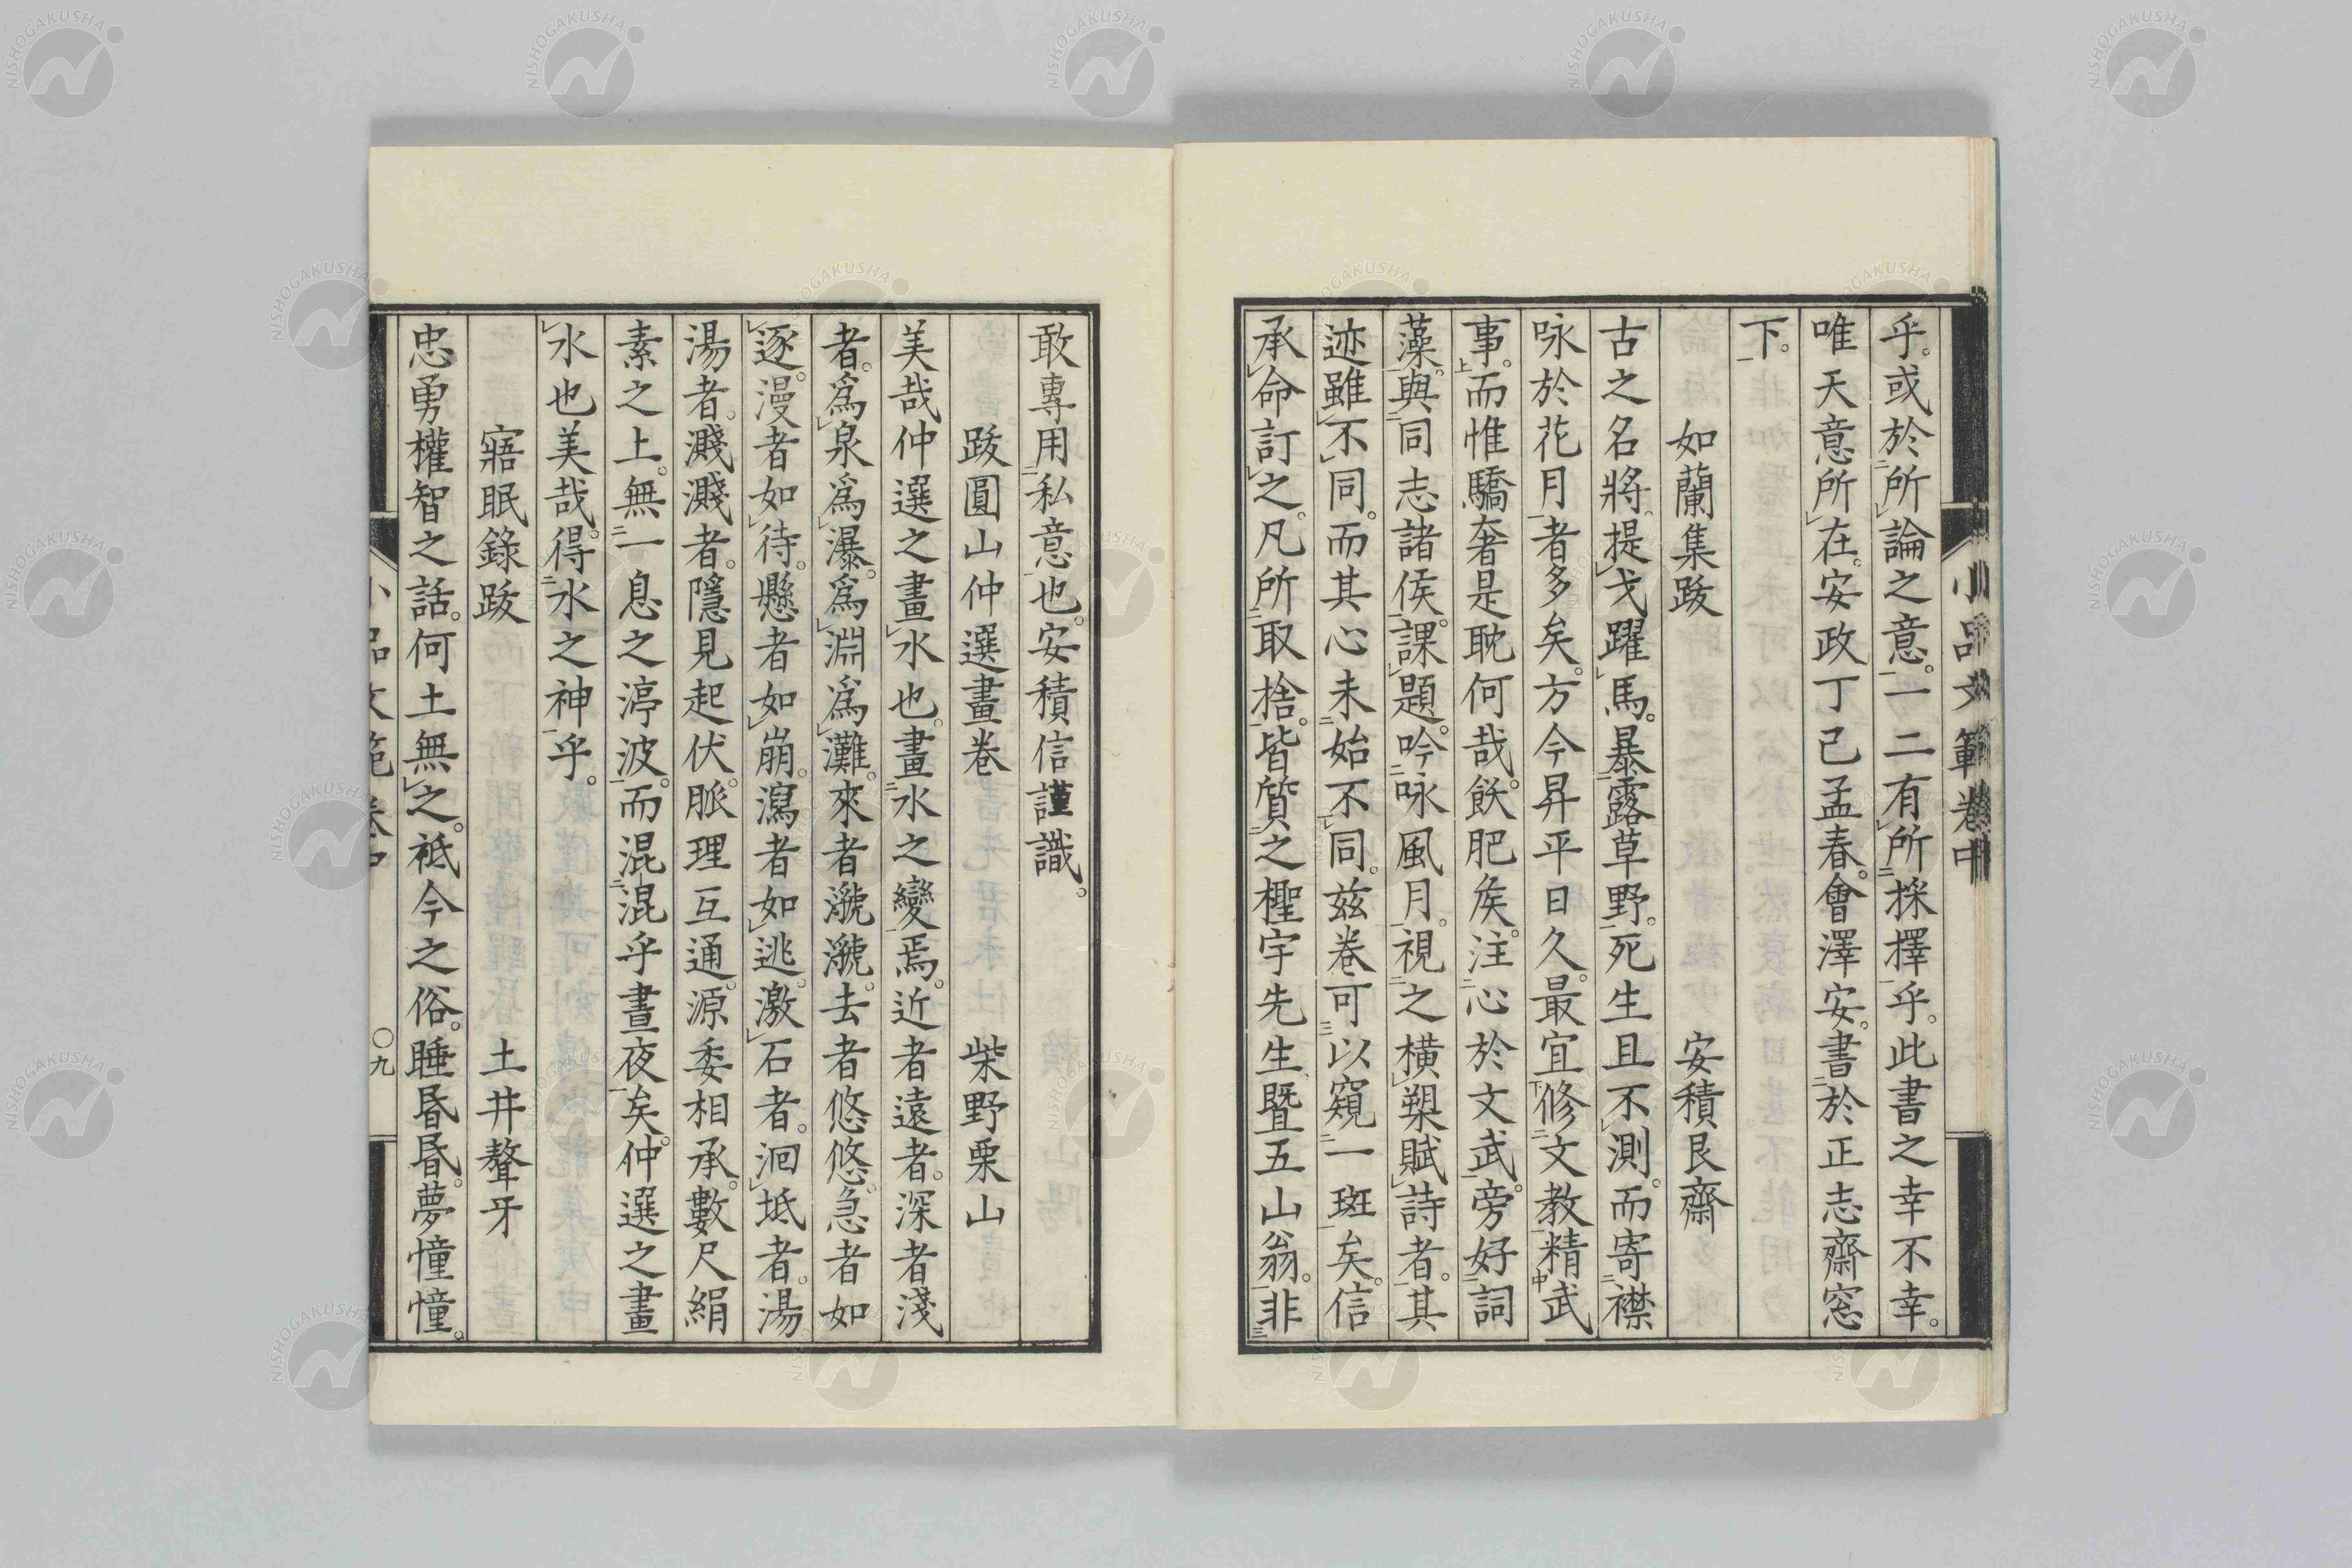 小品文範卷中
乎。或於所論之意。一二有所採擇乎。此書之幸不幸。
唯天意所在。安政丁己孟春。會澤安。書於正志齋窓
下。
如蘭集跋 安積艮齋
古之名將。提戈躍馬。暴露草野。死生且不測。而寄襟
咏於花月者多矣。方今昇平日久。最宜修文教精武
事。而惟驕奢是耽何哉。飫肥矦。注心於文武。旁好詞
藻。與同志諸侯。課題。吟咏風月。視之橫槊賦詩者。其
迹雖不同。而其心未始不同。玆卷可以窺一斑矣。信
承命訂之。凡所取捨。皆質之檉宇先生暨五山翁。非
敢專用私意也。安積信謹識。
跋圓山仲選畫卷 柴野栗山
美哉仲選之畫水也。畫水之變焉。近者遠者。深者淺
者。爲泉爲瀑。爲淵爲灘。來者㶁㶁。去者悠悠。急者如
逐。漫者如待。懸者如崩。瀉者如逃。激石者。洄坻者。湯
湯者。濺濺者。隱見起伏。脈理互通。源委相承。數尺絹
素之上。無一息之渟波。而混混乎晝夜矣。仲選之畫
水也美哉。得水之神乎。
寤眠錄跋 土井聱牙
忠勇權智之話。何土無之。袛今之俗。睡昏昏。夢憧憧。
小品文範卷中
〇九
NISHOGAKUSHA